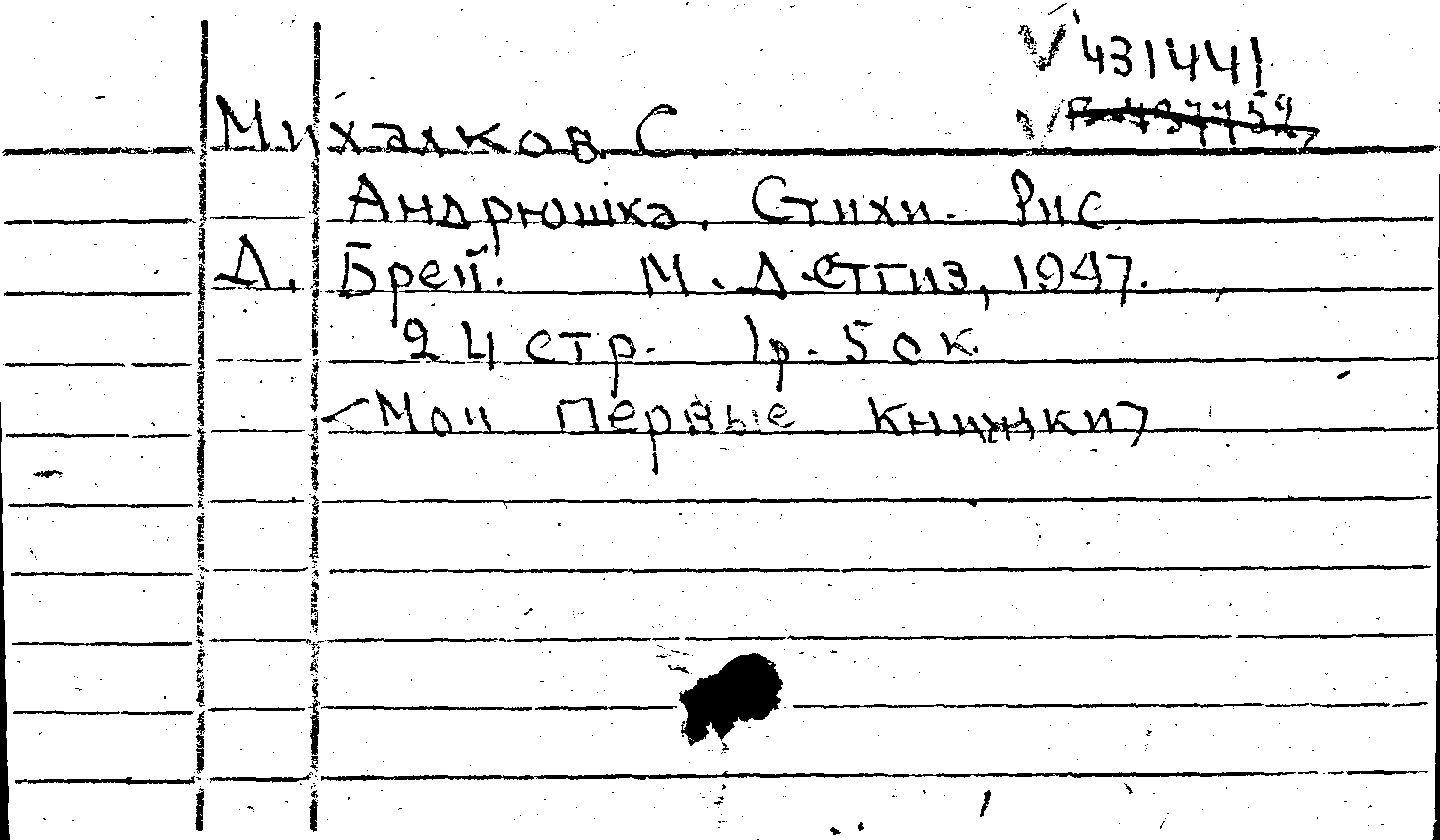 √ 431441
Михалков. С.
Андрюшка. Стихи. Рис
Д. Брей. М. Детгиз, 1947.
24 стр. 1р. 50 к.
<Мои Первые Книжки>